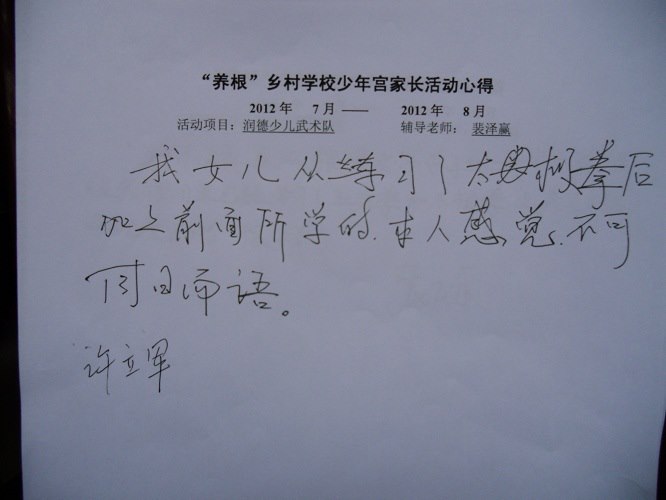 “养根”乡村学校少年宫家长活动心得
2012年 7月—— 2012年 8月
活动项目：润德少儿武术队 辅导老师： 裴泽赢
我女儿从练习了太极拳后
加上前面所学的.本人感觉.不可
同日而语。
许立军